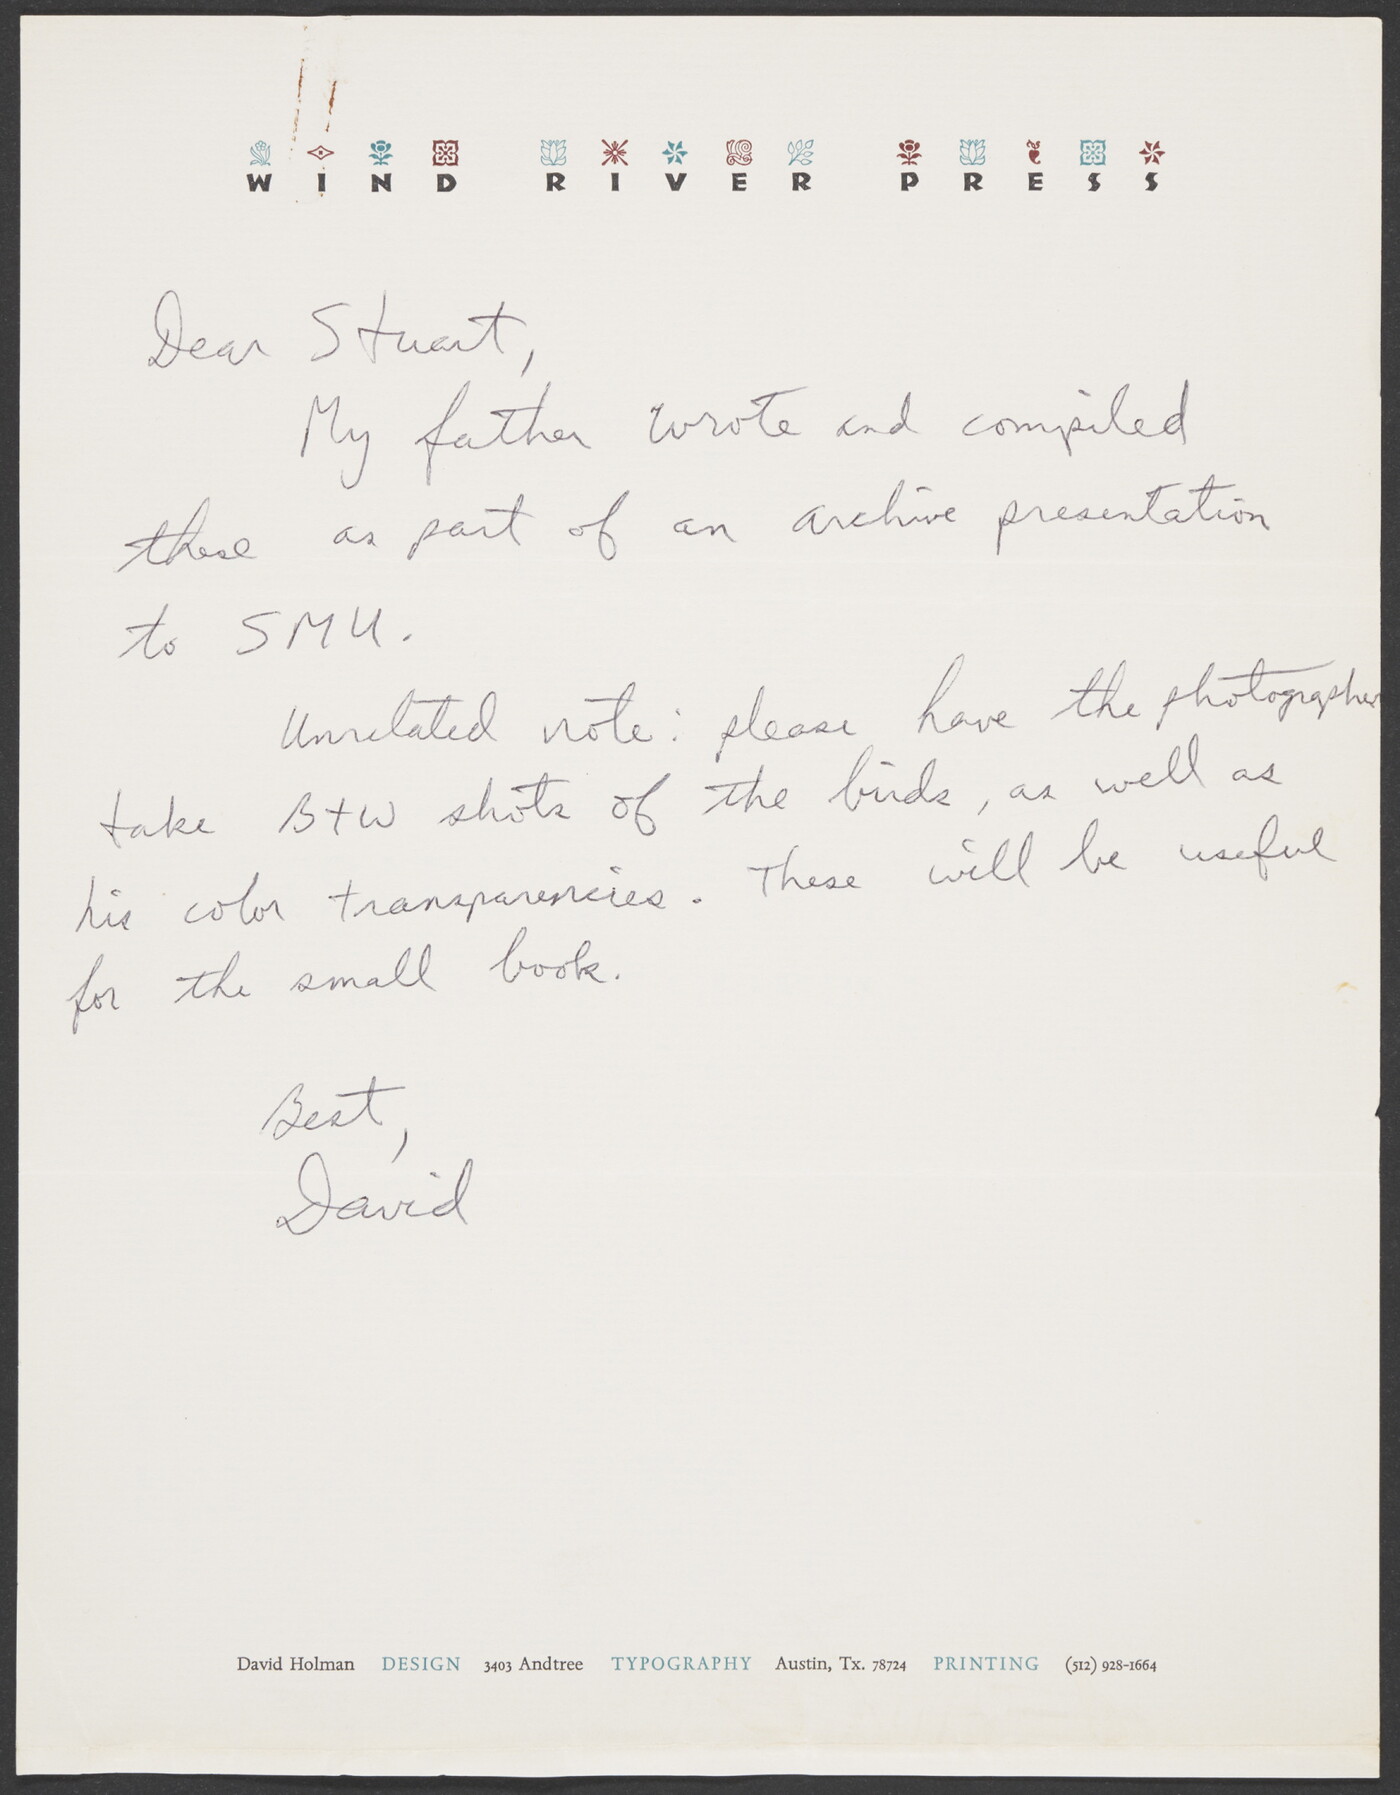 WIND RIVER PRESS
Dear Stuart,
My father wrote and compiled
these as part of an archive presentation
to SMU.
Unrelated note: please have the photographer
take B+W shots of the birds, as well as
his color transparencies. These will be useful
for the small book.
Best,
David
David Holman DESIGN 3403 Andtree TYPOGRAPHY Austin, Tx. 78724 PRINTING (512) 928-1664